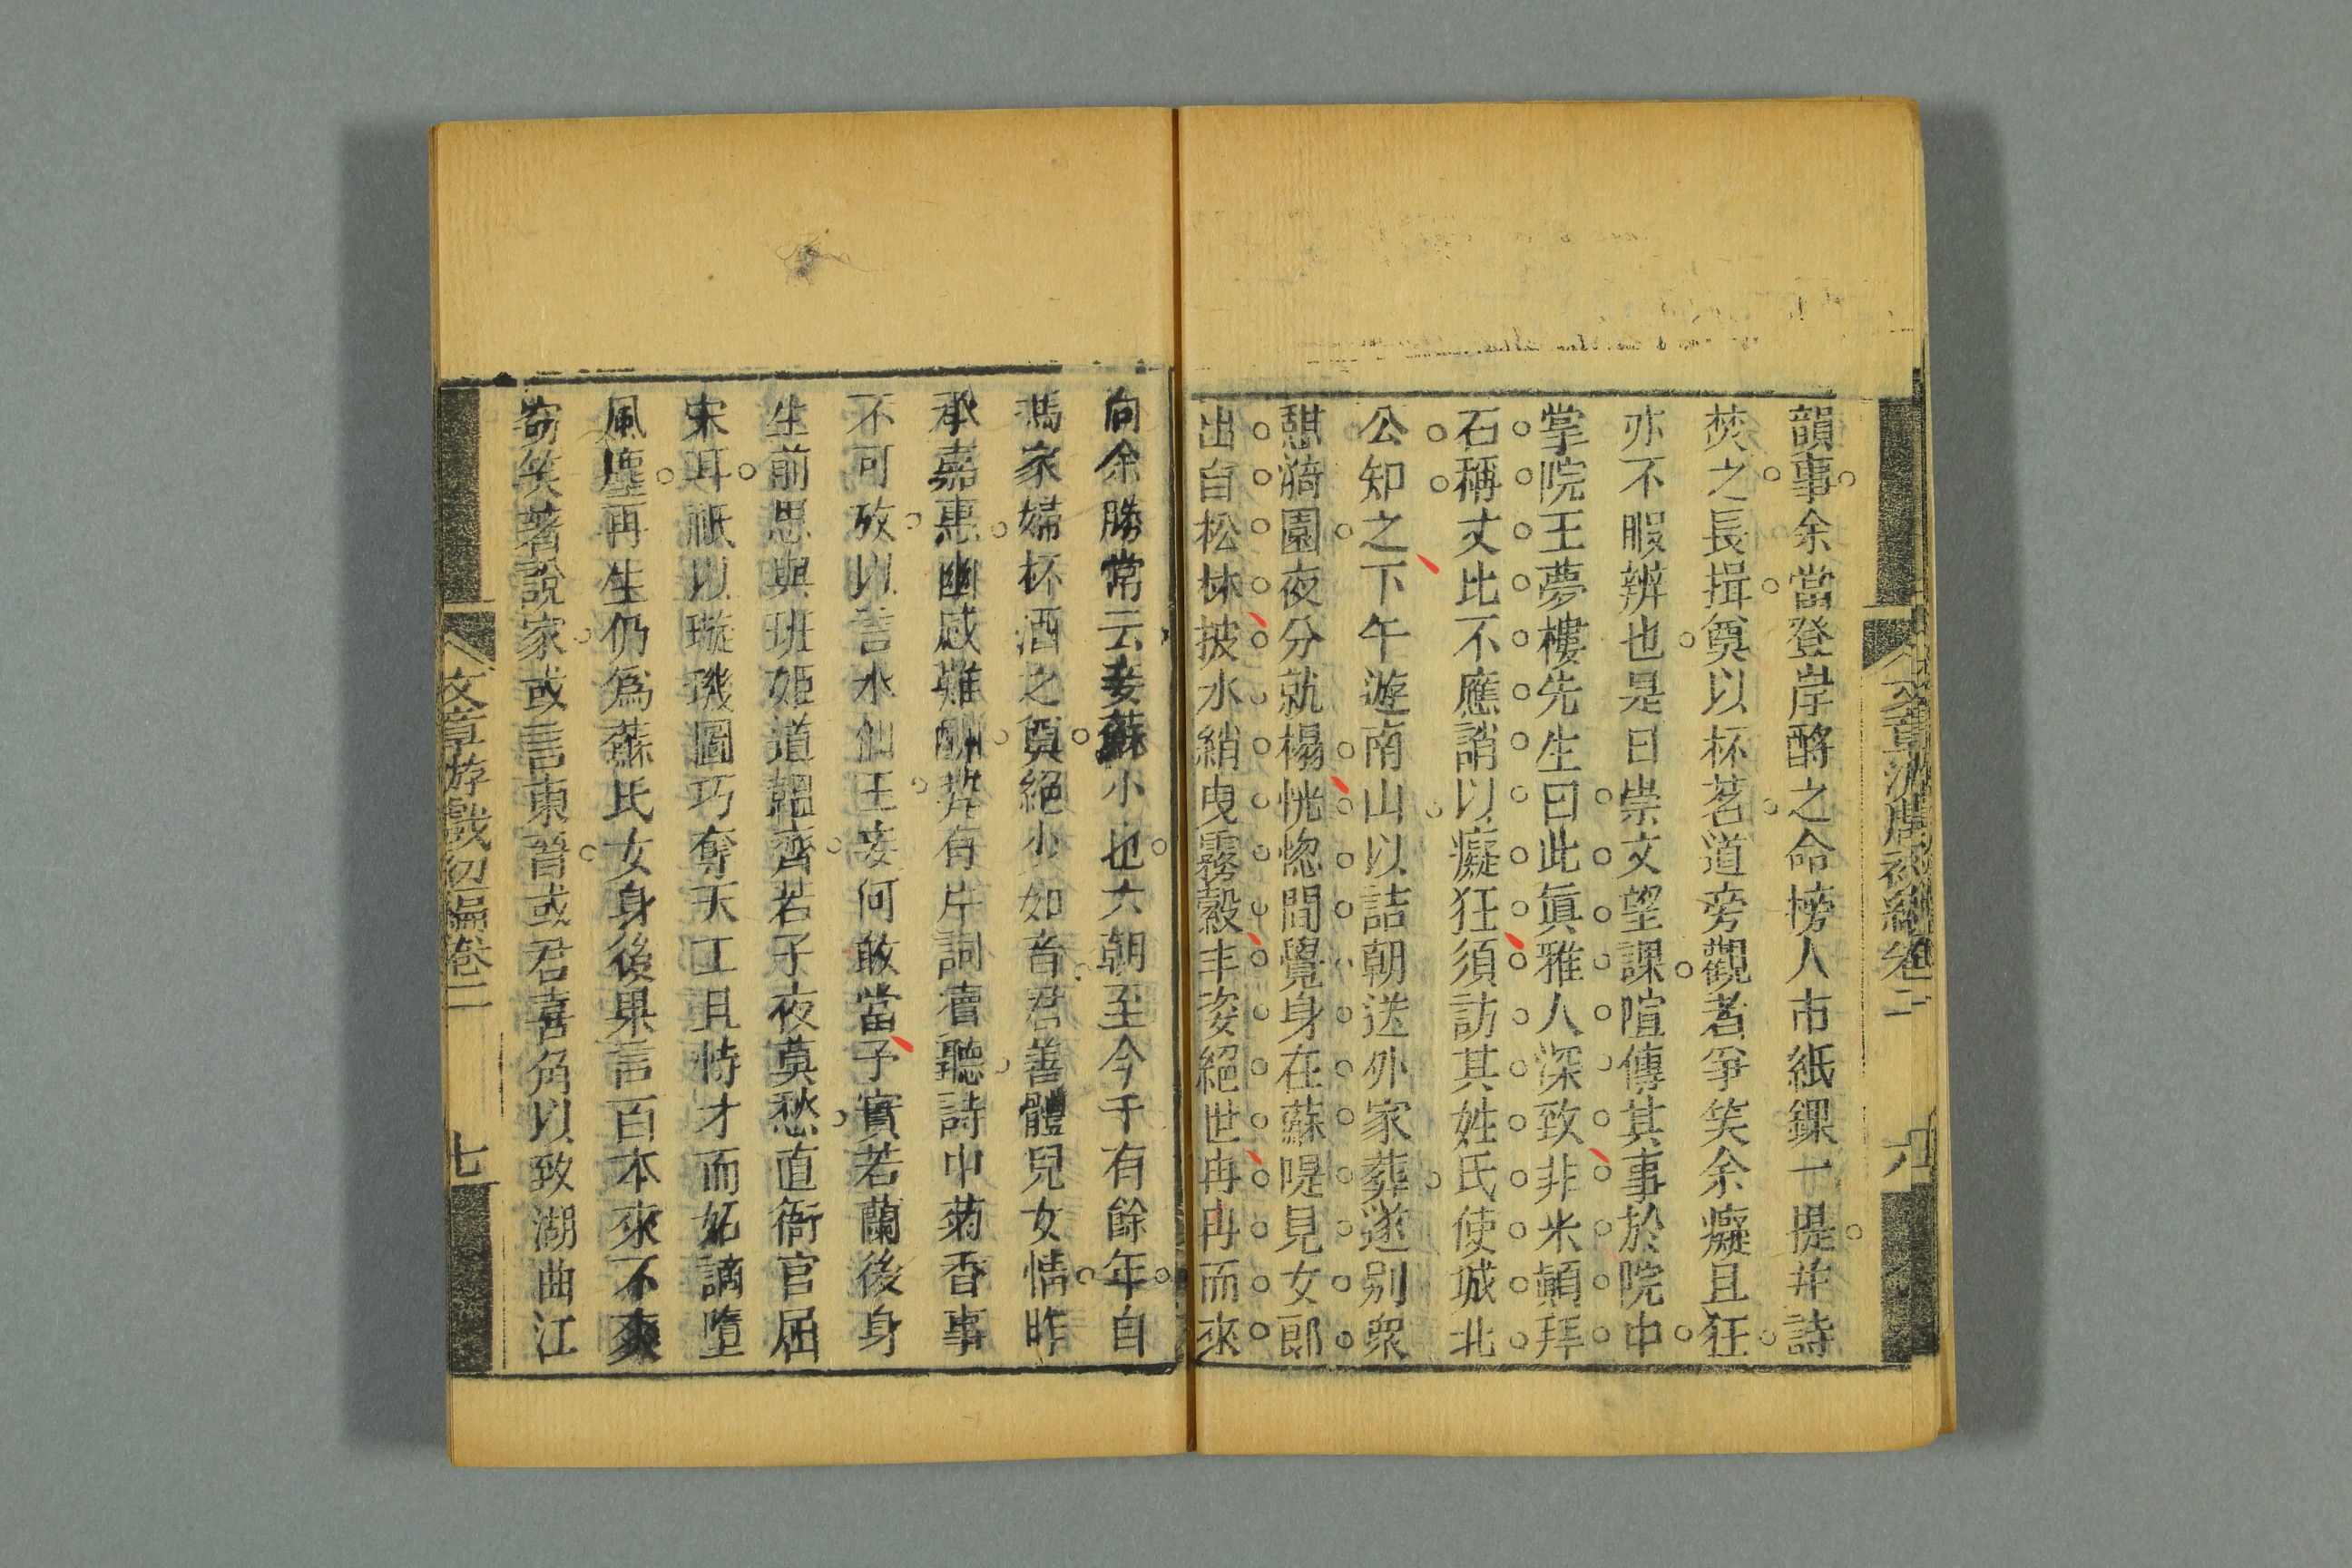 韻事余當登岸酧之命榜人市紙錁一提並詩
焚之長揖奠以杯茗道旁觀者爭笑余癡且狂
亦不暇辨也是日崇文望課喧傳其事於院中
掌院王夢樓先生曰此眞雅人深致非米顛拜
石稱丈比不應誚以癡狂須訪其姓氏使城北
公知之下午遊南山以詰朝送外家葬遂别衆
憇漪園夜分就榻恍惚間覺身在蘇堤見女郎
出自松林披水綃曳霧縠丰姿絕世冉冉而來
向余勝常云妾蘇小也六朝至今千有餘年自
馮家婦杯酒之奠絕少知音君善體兒女情昨
承嘉惠幽感難酬茲有片詞瀆聽詩中菊香事
不可攷以言水仙王妾何敢當子實若蘭後身
生前思與班姬道韞齊若子夜莫愁直衙官屈
宋耳祇以璇璣圖巧奪天工且恃才而妬謫墮
風塵再生仍爲蘇氏女身後果言百本來不爽
竊笑著說家或言東晉或君喜角以致湖曲江
文章游戲初編卷二
七
六